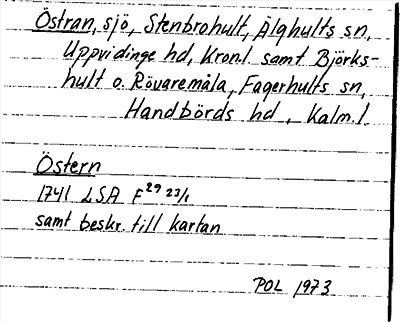 Östran, sjö, Stenbrohult, Älghults sn,
Uppvidinge hd, Kron.l samt Björks-
hult o. Rövaremåla, Fagerhults sn,
Handbörds hd, Kalm.l.
Östern
1741 LSA F29 23/1
samt beskr. till kartan
POL 1973